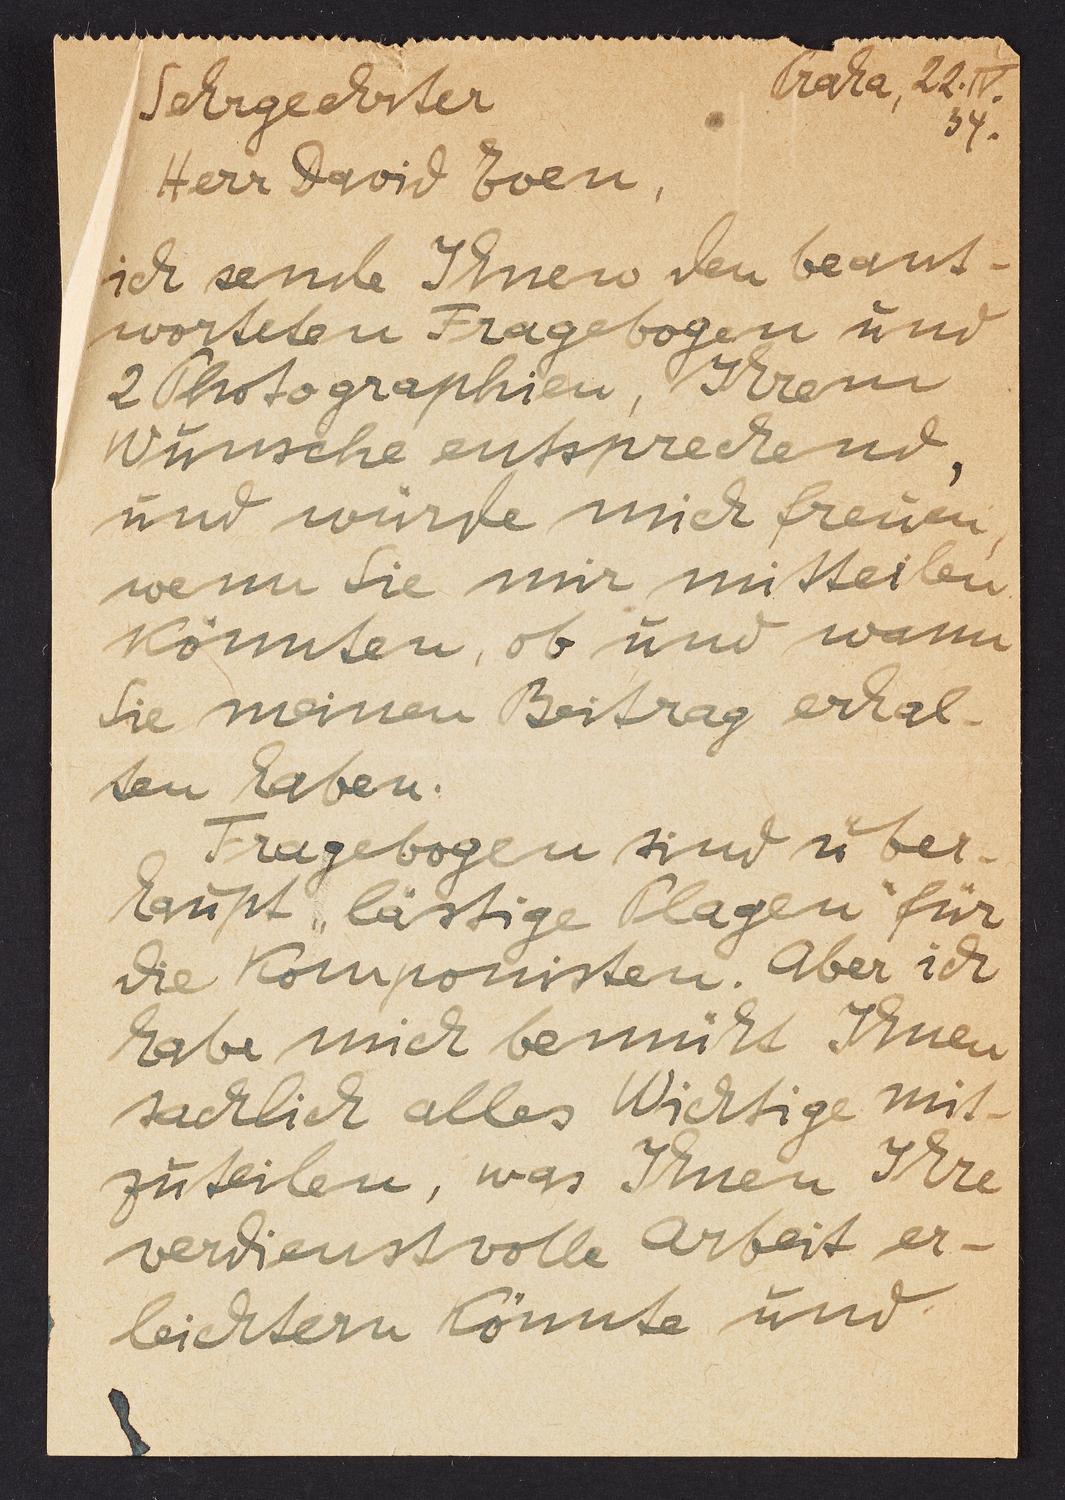 Praha, 22.IV.
34.
Sehrgeehrter
Herr David Ewen,
ich sende Ihnen den beant-
worteten Fragebogen und
2 Photographien, Ihrem
Wunsche entsprechend,
und würde mich freuen,
wenn Sie mir mitteilen
könnten, ob und wann
Sie meinen Beitrag erhal-
ten haben.
Fragebogen sind über-
haupt „lästige Plagen“ für
die Komponisten. Aber ich
habe mich bemüht Ihnen
sachlich alles Wichtige mit-
zuteilen, was Ihnen Ihre
verdienstvolle Arbeit er-
leichtern könnte und